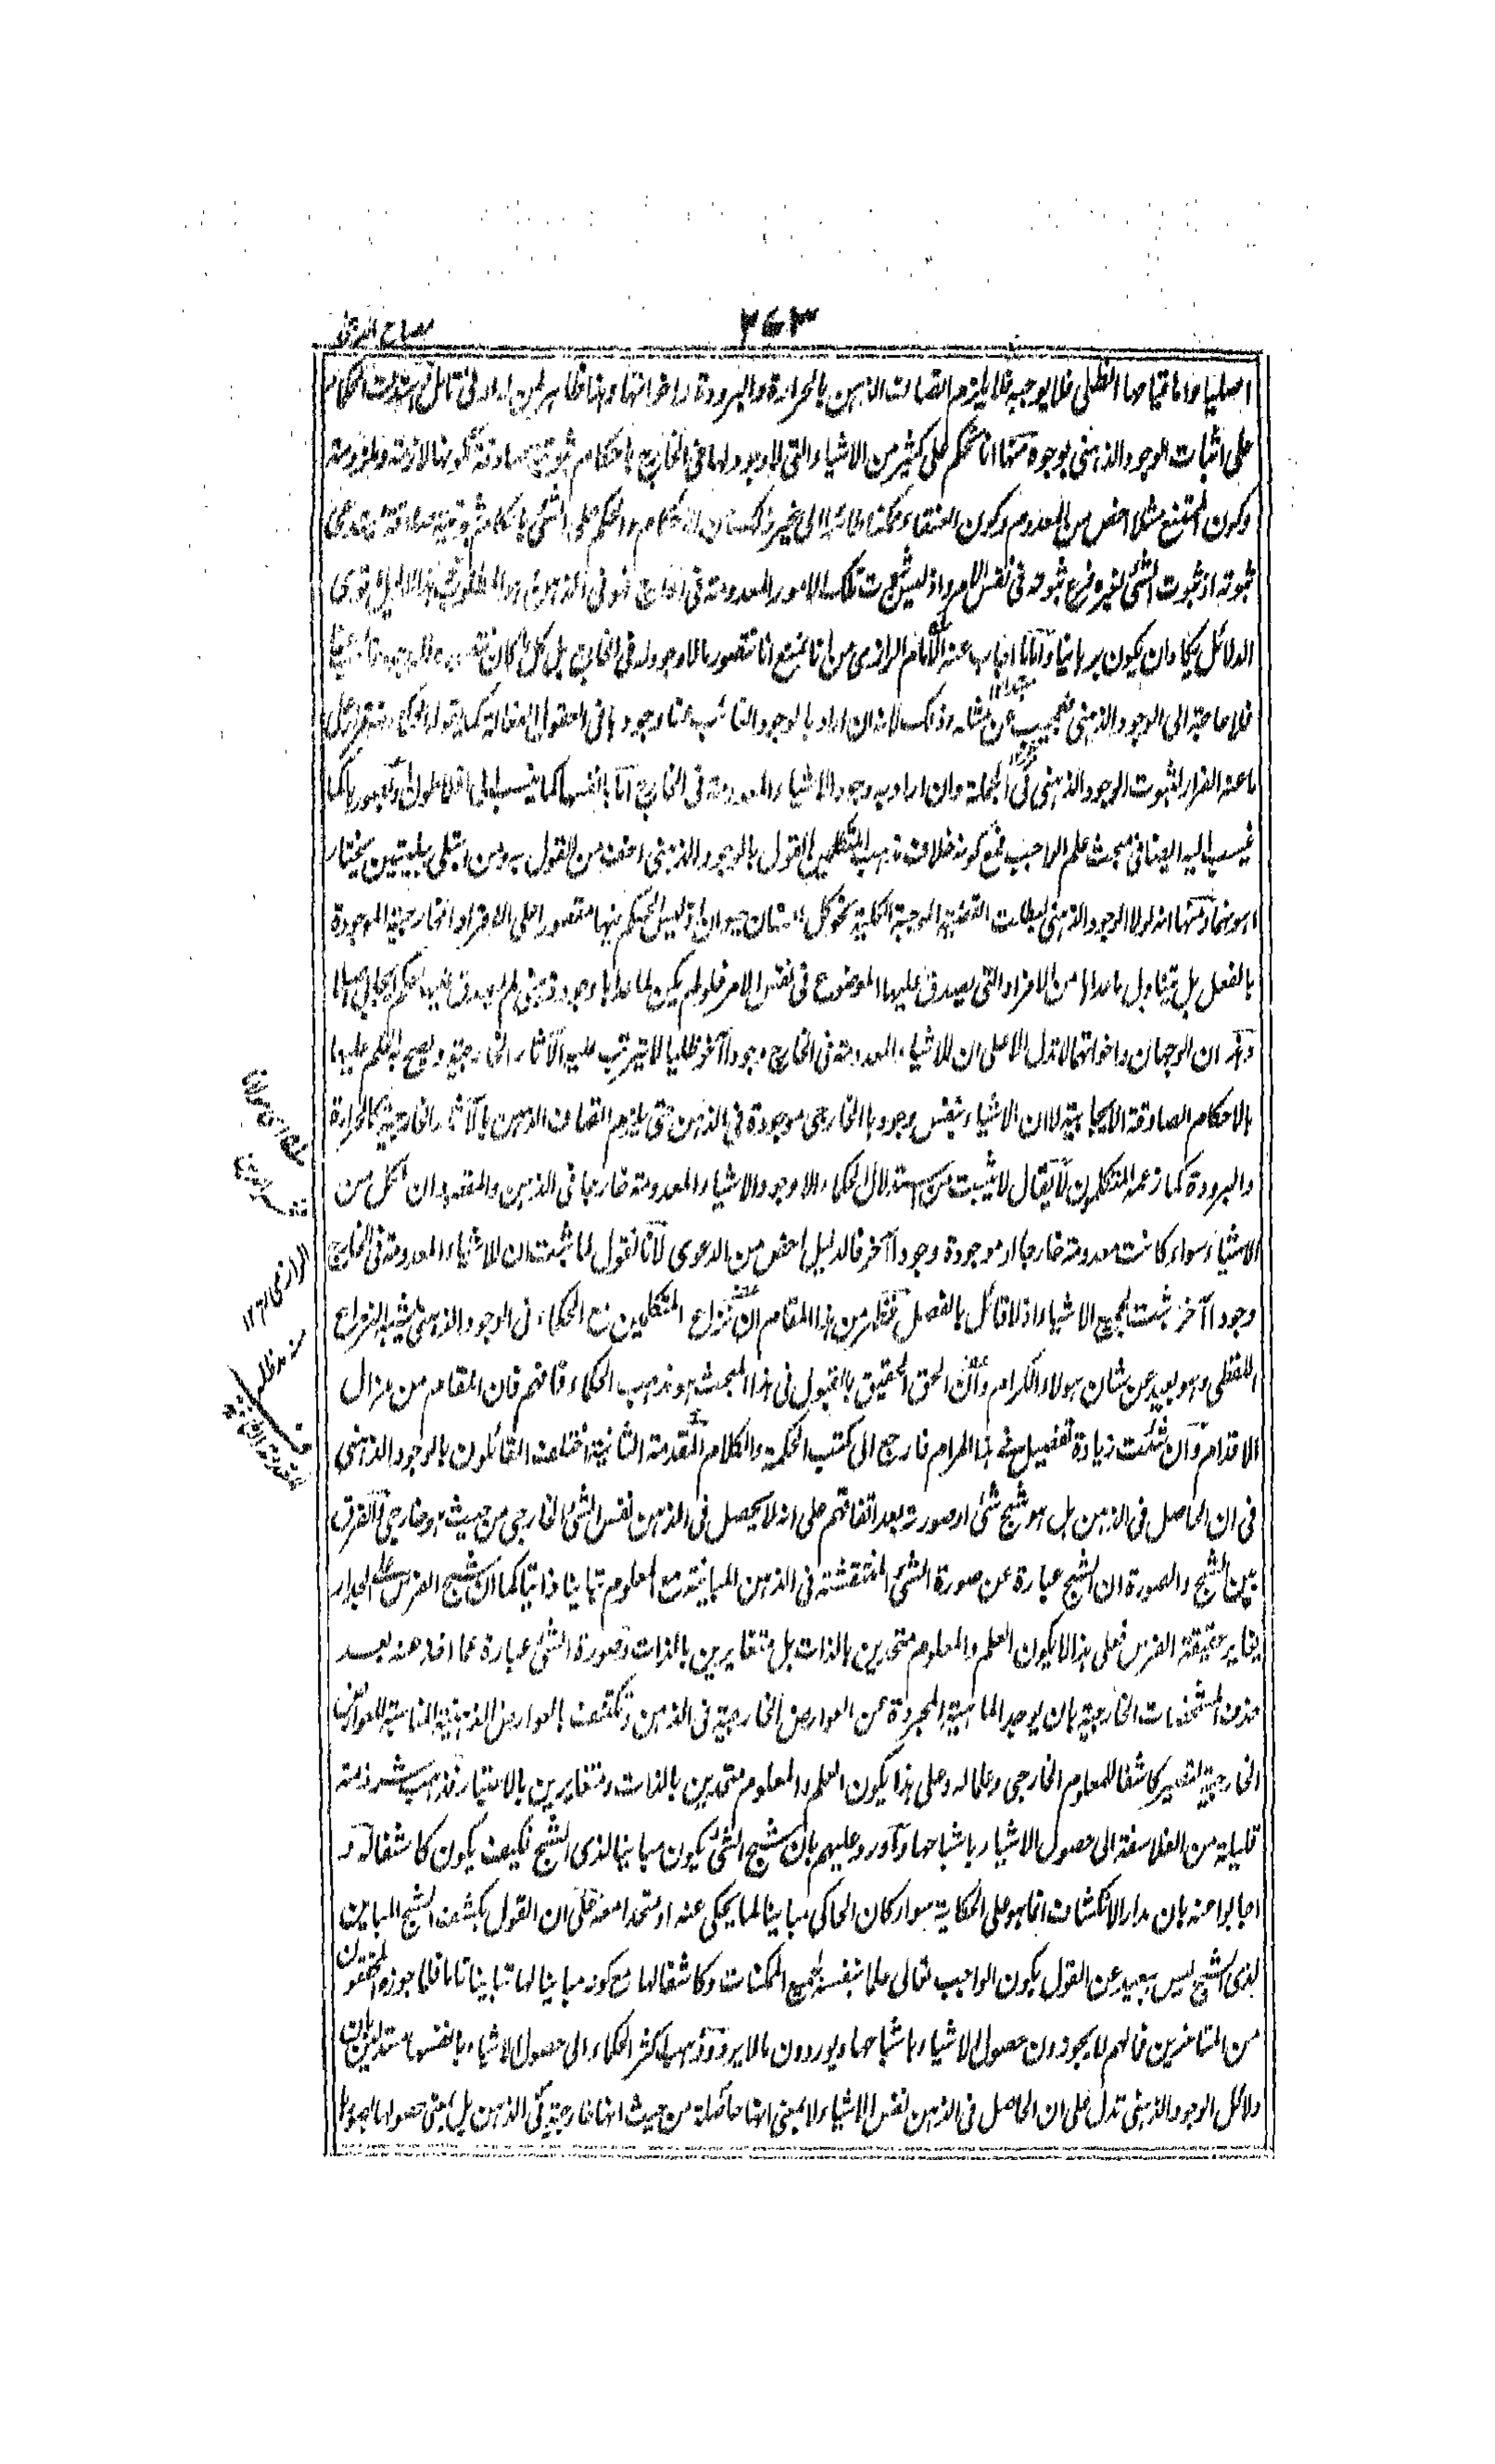 ٢٦٣
مصباح الدجى
اصليا واما قيامها الظلى فلا يوجبه فلا يلزم اتصاف الذهن بالحرارة والبرودة واخواتها وهذا ظاهر لمن له ادنى تامل واستدلت الحكماء
على اثبات الوجود الذهنى بوجوه منها انا نحكم على كثير من الاشياء التى لا وجود لها فى الخارج باحكام ثبوتية صادقة ككونها لازمة وملزومة
وكون الممتنع مثلا اخص من المعدوم وكون العنقاء ممكنا طائرا الى غير ذلك من الاحكام والحكم على الشئ باحكام ثبوتية صادقة يستدعى
ثبوته اذ ثبوت الشئ لغيره فرع ثبوته فى نفس الامر واذ ليس ثبوت تلك الامور المعدومة فى الخارج فهو فى الذهن وهو المطلوب وهذا الدليل اقوى
الدلائل يكاد ان يكون برهانيا واما ما اجاب عنه الامام الرازى من انا نمنع انا نتصور ما لا وجود له فى الخارج بل كل ما كان نتصوره فله وجود غائب عنا
فلا حاجة الى الوجود الذهنى فعجيب عن مثله وذلك لانه ان اراد بالوجود الغائب عنا وجودها فى العقول الفعالة كما يقوله الحكماء فقد لزم على
ما عنه الفرار لثبوت الوجود الذهنى فى الجملة وان اراد به وجود الاشياء المعدومة فى الخارج اما بانفسها كما ينسب الى افلاطون او بصورها كما
ينسب اليه ايضا فى مبحث علم الواجب فمع كونه خلاف مذهب المتكلمين القول بالوجود الذهنى اخف من القول به ومن ابتلى ببليتين يختار
اهونهما ومنها انه لولا الوجود الذهنى لبطلت القضية الموجبة الكلية نحو كل انسان حيوان اذ ليس الحكم فيها مقصورا على الافراد الخارجية الموجودة
بالفعل بل يتناول ما عداها من الافراد التى يصدق عليها الموضوع فى نفس الامر فلو لم يكن لما عداها وجود ذهنى لم يصدق عليها حكم ايجابى اصلا
وانت ان الوجهان واخواتهما لا تدل الا على ان للاشياء المعدومة فى الخارج وجودا آخر ظليا لا تترتب عليه الآثار الخارجية ويصح به الحكم عليها
بالاحكام الصادقة الايجابية لا ان الاشياء بنفس وجودها الخارجى موجودة فى الذهن حتى يلزم اتصاف الذهن بالآثار الخارجية كالحرارة
والبرودة كما زعمه المتكلمون لا يقال لا يثبت من استدلال الحكماء الا وجود الاشياء المعدومة خارجا فى الذهن والمقصود ان لكل من
الاشياء سواء كانت معدومة خارجا او موجودة وجودا آخر فالدليل اخص من الدعوى لانا نقول لما ثبت ان للاشياء المعدومة فى الخارج
وجودا آخر ثبت لجميع الاشياء اذ لا قائل بالفصل فظهر من هذا المقام ان نزاع المتكلمين مع الحكماء فى الوجود الذهنى يشبه النزاع
اللفظى وهو بعيد عن شان هؤلاء الكرام وان الحق الحقيق بالقبول فى هذا المبحث هو مذهب الحكماء فافهم فان المقام من مزال
الاقدام وان شئت زيادة تفصيل فى هذا المرام فارجع الى كتب الحكمة والكلام المقدمة الثانية اختلفت القائلون بالوجود الذهنى
فى ان الحاصل فى الذهن هل هو شبح شئ او صورته بعد اتفاقهم على انه لا يحصل فى الذهن نفس الشئ الخارجى من حيث هو خارجى والفرق
بين الشبح والصورة ان الشبح عبارة عن صورة الشئ المنتقشة فى الذهن المباينة مع المعلوم تباينا ذاتيا كما ان شبح الفرس على الجدار
يغاير حقيقة الفرس فعلى هذا لا يكون العلم والمعلوم متحدين بالذات بل متغايرين بالذات وصورة الشئ عبارة عما اخذ عنه بعد
حذف المشخصات الخارجية بان يوجد الماهية المجردة عن العوارض الخارجية فى الذهن وتكتنف بالعوارض الذهنية المناسبة للعوارض
الخارجية لتصير كاشفا للمعلوم الخارجى وعلما له وعلى هذا يكون العلم والمعلوم متحدين بالذات ومتغايرين بالاعتبار فذهب شرذمة
قليلة من الفلاسفة الى حصول الاشياء باشباحها واورد عليهم بان شبح الشئ يكون مباينا لذى الشبح فكيف يكون كاشفا له و
اجابوا عنه بان مدار الانكشاف انما هو على الحكاية سواء كان الحاكى مباينا لما يحكى عنه او متحدا معه على ان القول بكشف الشبح المباين
لذى الشبح ليس ببعيد عن القول بكون الواجب تعالى علما بنفسه لجميع الممكنات وكاشفا لها مع كونه مباينا لها تباينا تاما فلما جوزه المحققون
من المتاخرين فما لهم لا يجوزون حصول الاشياء باشباحها ويوردون ما لا يرد وذهب اكثر الحكماء الى حصول الاشياء بانفسها مستدلين بان
دلائل الوجود الذهنى تدل على ان الحاصل فى الذهن نفس الاشياء لا بمعنى انها حاصلة من حيث انها خارجية فى الذهن بل بمعنى حصولها بصورها
الرازى ١٢
منه مد ظله